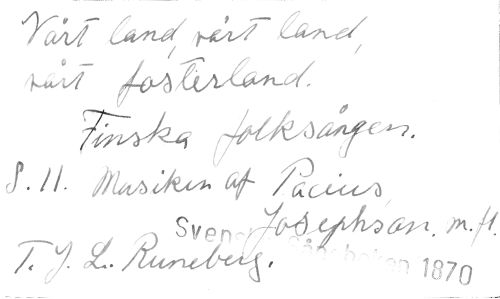 Vårt land, vårt land,
vårt fosterland.
Finska folksången.
S. 11. Musiken af Pacius,
Josephson. m. fl.
Svenska Sångboken 1870
T. J. L. Runeberg.